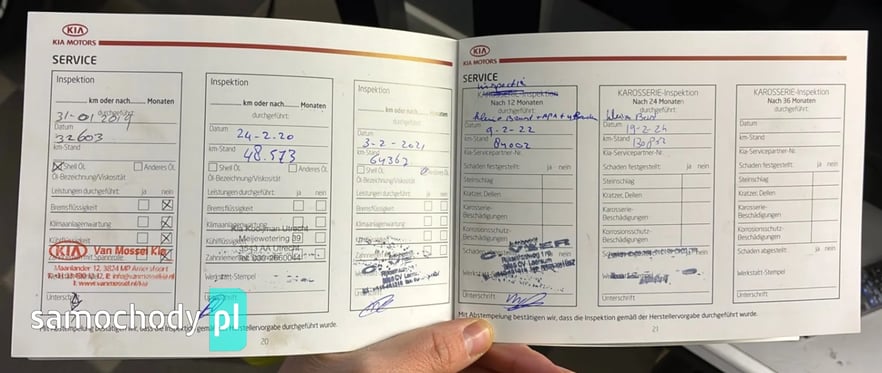 KIA
KIA MOTORS
SERVICE
Inspektion
km oder nach Monaten
durchgeführt:
31-01 2019
Datum
32603
km-Stand
Shell Öl Anderes Öl
Öl-Bezeichnung/Viskosität
Leistungen durchgeführt: ja nein
Bremsflüssigkeit
Klimaanlagenwartung
Kühlflüssigkeit
KIA Van Mossel Kia
Maanlander 12, 3824 MP Amersfoort
I: www.vanmossel.nl/kia
Unterschrift
Inspektion
km oder nach Monaten
durchgeführt:
Datum
24-2-20
km-Stand
48.573
Shell Öl Anderes Öl
Öl-Bezeichnung/Viskosität
Leistungen durchgeführt: ja nein
Bremsflüssigkeit
Klimaanlagenwartung
Kia Kooijman Utrecht
Kühlflüssigkeit
Meijewetering 39
3543 AA Utrecht
Tel. 030-2660044
Werkstatt-Stempel
Inspektion
km oder nach Monaten
durchgeführt:
3-2-2021
Datum
64363
km-Stand
Shell Öl Anderes Öl
Öl-Bezeichnung/Viskosität
Leistungen durchgeführt: ja nein
Bremsflüssigkeit
Klimaanlagenwartung
Unterschrift
Mit Abstempelung bestätigen wir, dass die Inspektion gemäß der Herstellervorgabe durchgeführt wurde.
20
samochody.pl
KIA
KIA MOTORS
SERVICE
KAROSSERIE-Inspektion
Nach 12 Monaten
durchgeführt:
Datum
9-2-22
km-Stand
84002
Kia-Servicepartner-Nr.
Schaden festgestellt: ja nein
Steinschlag
Kratzer, Dellen
Karosserie-
Beschädigungen
Korrosionsschutz-
Beschädigungen
Unterschrift
KAROSSERIE-Inspektion
Nach 24 Monaten
durchgeführt:
Datum
19-2-24
km-Stand
Kia-Servicepartner-Nr.
Schaden festgestellt: ja nein
Steinschlag
Kratzer, Dellen
Karosserie-
Beschädigungen
Korrosionsschutz-
Beschädigungen
Unterschrift
KAROSSERIE-Inspektion
Nach 36 Monaten
durchgeführt:
Datum
km-Stand
Kia-Servicepartner-Nr.
Schaden festgestellt: ja nein
Steinschlag
Kratzer, Dellen
Karosserie-
Beschädigungen
Korrosionsschutz-
Beschädigungen
Schaden abgestellt: ja nein
Werkstatt-Stempel
Unterschrift
Mit Abstempelung bestätigen wir, dass die Inspektion gemäß der Herstellervorgabe durchgeführt wurde.
21